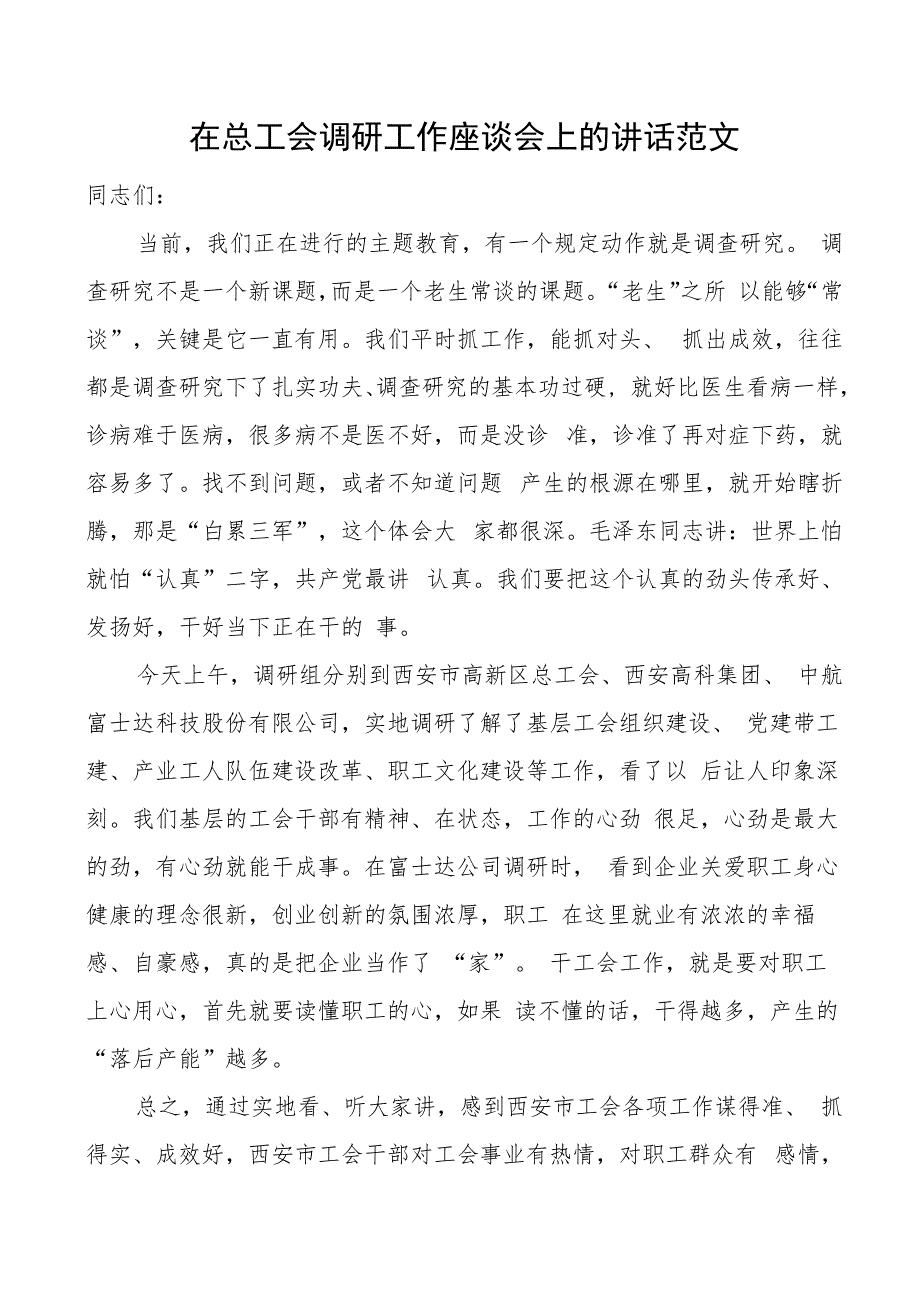 在总工会调研工作座谈会上的讲话范文
同志们：
当前，我们正在进行的主题教育，有一个规定动作就是调查研究。 调
查研究不是一个新课题,而是一个老生常谈的课题。“老生”之所 以能够“常
谈”，关键是它一直有用。我们平时抓工作，能抓对头、 抓出成效，往往
都是调查研究下了扎实功夫、调查研究的基本功过硬，就好比医生看病一样，
诊病难于医病，很多病不是医不好，而是没诊 准，诊准了再对症下药，就
容易多了。找不到问题，或者不知道问题 产生的根源在哪里，就开始瞎折
腾，那是“白累三军”，这个体会大 家都很深。毛泽东同志讲：世界上怕
就怕“认真”二字，共产党最讲 认真。我们要把这个认真的劲头传承好、
发扬好，干好当下正在干的 事。
今天上午，调研组分别到西安市高新区总工会、西安高科集团、 中航
富士达科技股份有限公司，实地调研了解了基层工会组织建设、 党建带工
建、产业工人队伍建设改革、职工文化建设等工作，看了以 后让人印象深
刻。我们基层的工会干部有精神、在状态，工作的心劲 很足，心劲是最大
的劲，有心劲就能干成事。在富士达公司调研时， 看到企业关爱职工身心
健康的理念很新，创业创新的氛围浓厚，职工 在这里就业有浓浓的幸福
感、自豪感，真的是把企业当作了 “家”。 干工会工作，就是要对职工
上心用心，首先就要读懂职工的心，如果 读不懂的话，干得越多，产生的
“落后产能”越多。
总之，通过实地看、听大家讲，感到西安市工会各项工作谋得准、 抓
得实、成效好，西安市工会干部对工会事业有热情，对职工群众有 感情，